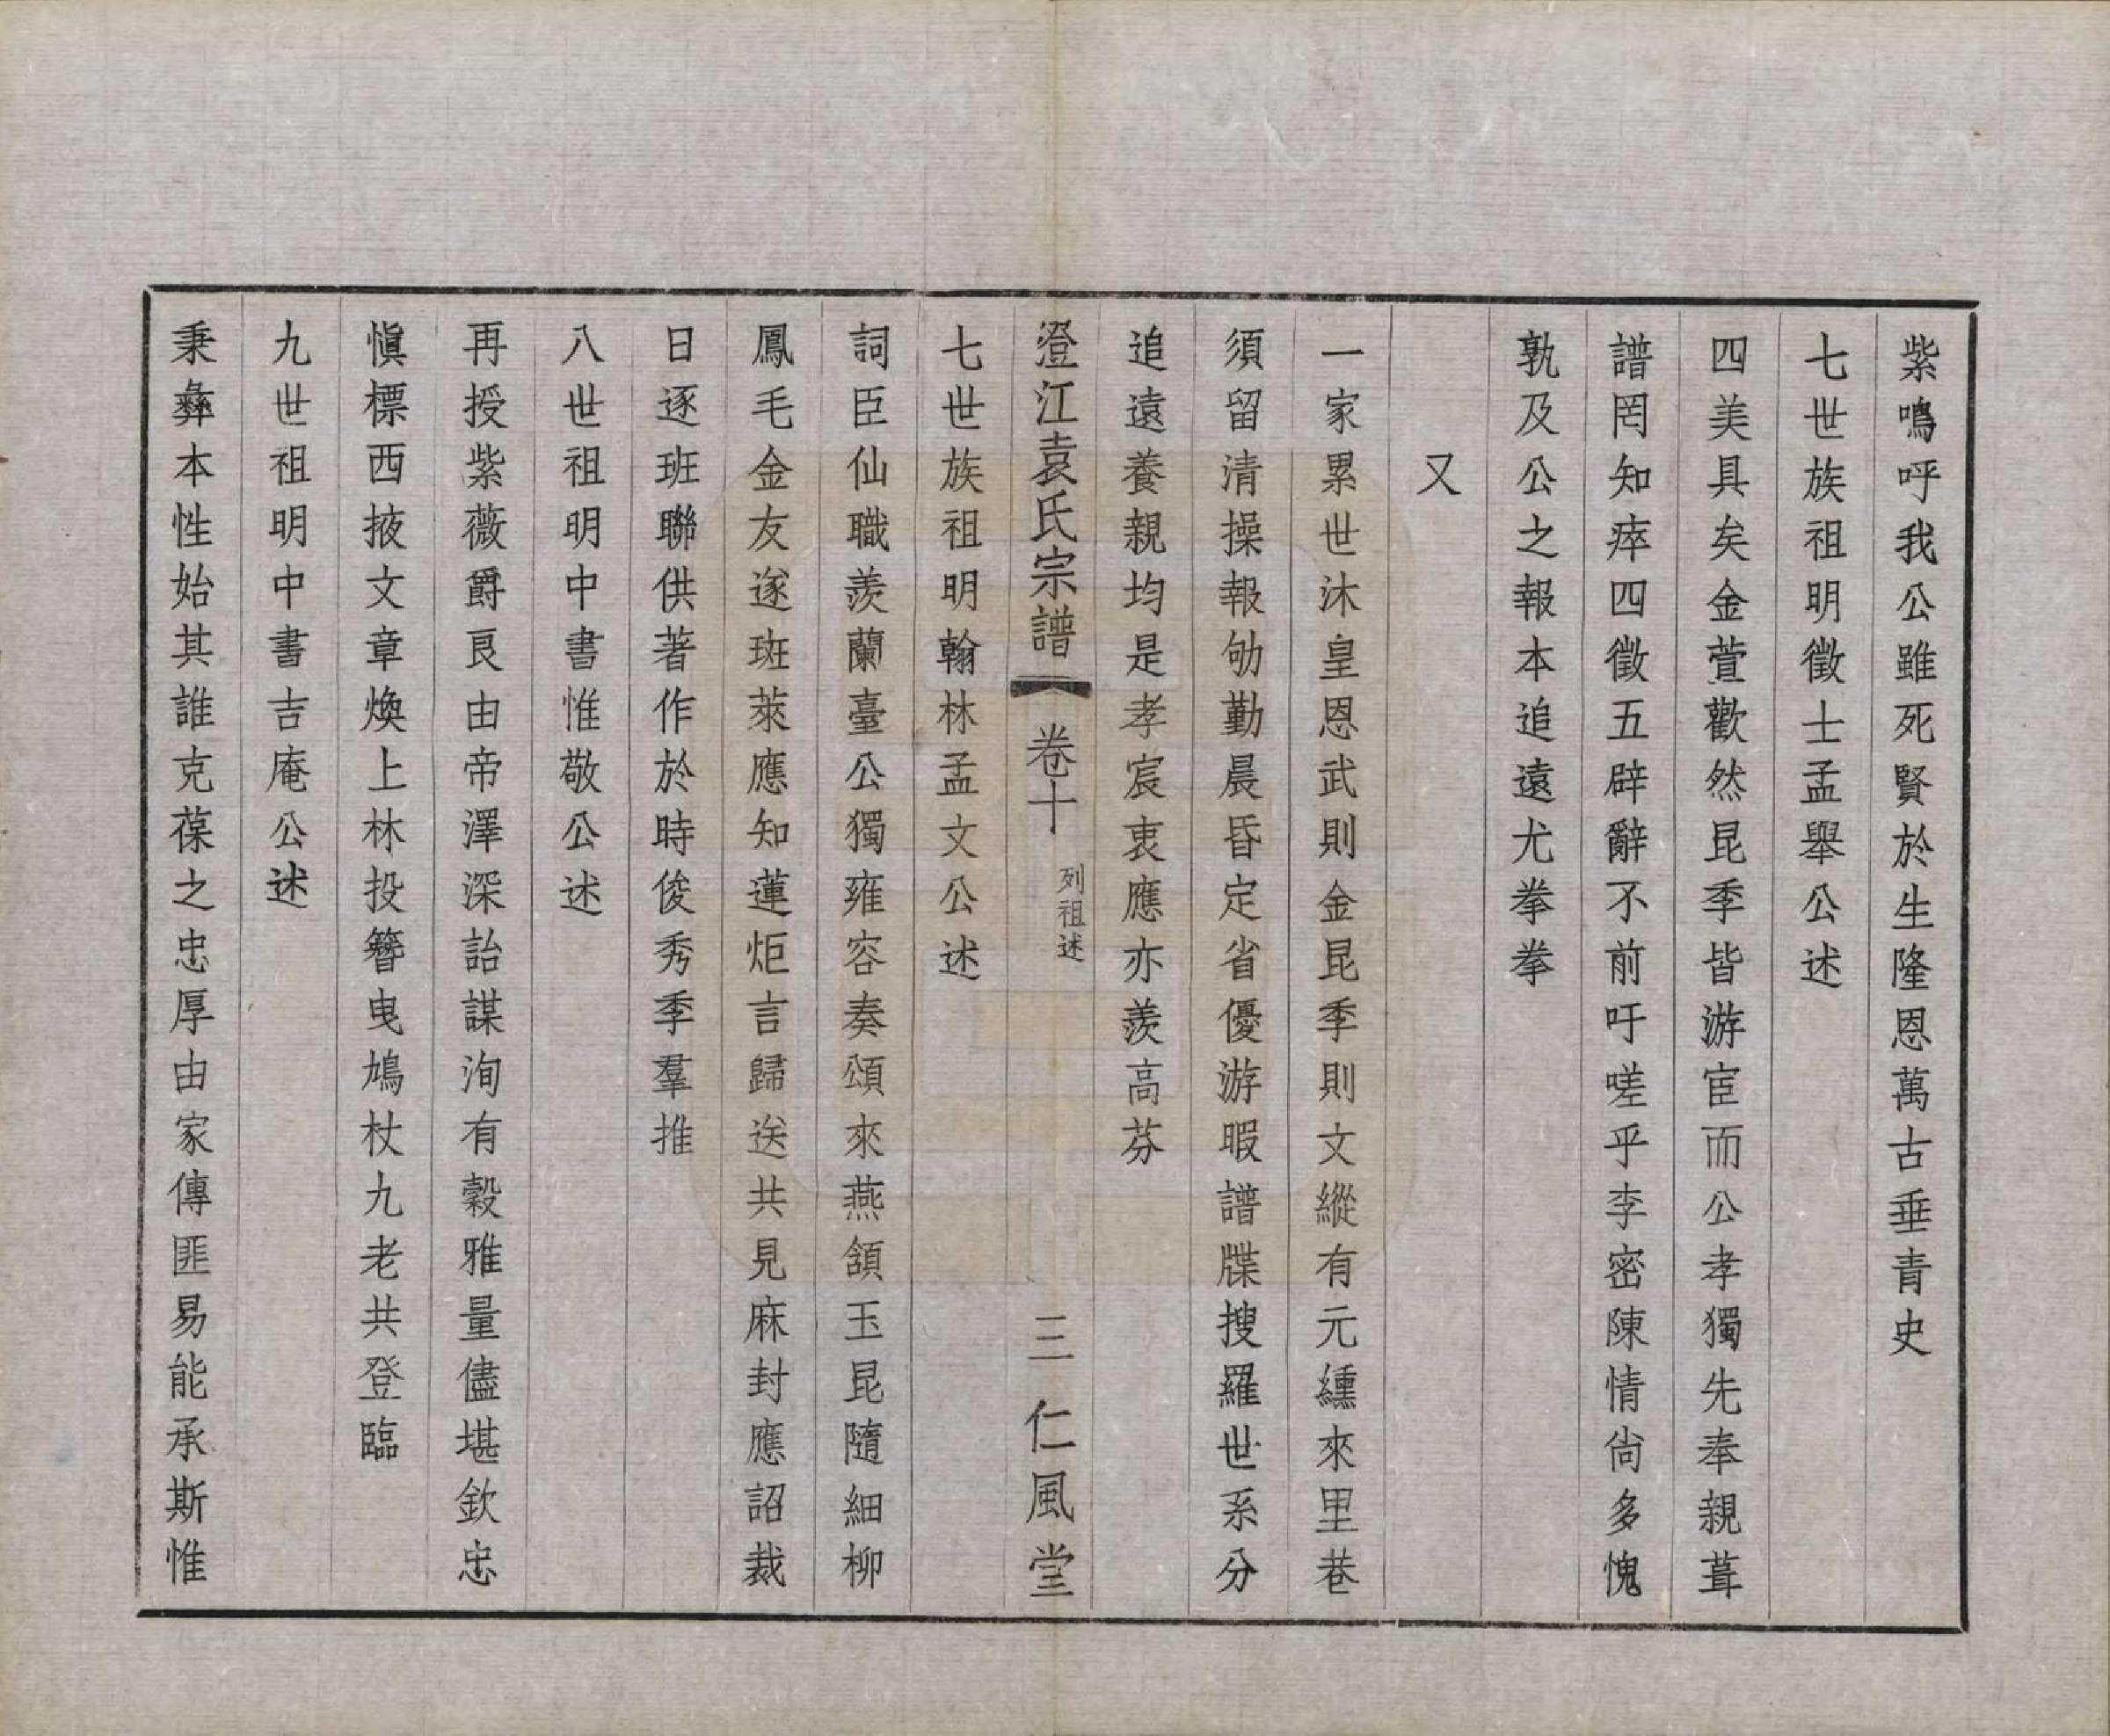 紫鳴呼我公雖死賢於生隆恩萬古垂青史
七世族祖明徵士孟舉公述
四美具矣金萱歡然昆季皆游宦而公孝獨先奉親葺
譜罔知瘁四徵五辟辭不前吁嗟乎李密陳情尙多愧
孰及公之報本追遠尤拳拳
又
一家累世沐皇恩武則金昆季則文縱有元纁來里巷
須留清操報劬勤晨昏定省優游暇譜牒搜羅世系分
追遠養親均是孝宸衷應亦羨高芬
澄江袁氏宗譜 卷十 列祖述 三 仁風堂
七世族祖明翰林孟文公述
詞臣仙職羨蘭臺公獨雍容奏頌來燕頷玉昆隨細柳
鳳毛金友遂斑萊應知蓮炬言歸送共見麻封應詔裁
日逐班聯供著作於時俊秀季羣推
八世祖明中書惟敬公述
再授紫薇爵艮由帝澤深詒謀洵有穀雅量儘堪欽忠
愼標西掖文章煥上林投簪曳鳩杖九老共登臨
九世祖明中書吉庵公述
秉彝本性始其誰克葆之忠厚由家傳匪易能承斯惟